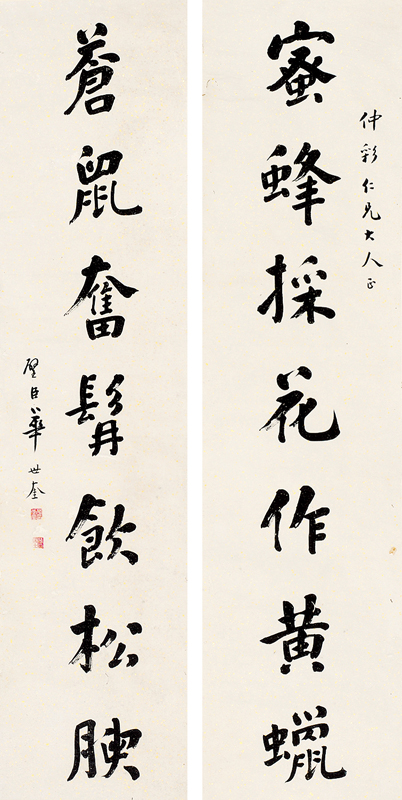 仲彩仁兄大人正
蜜蜂採花作黄蠟
蒼鼠奮髯飲松腴
璧臣華世奎